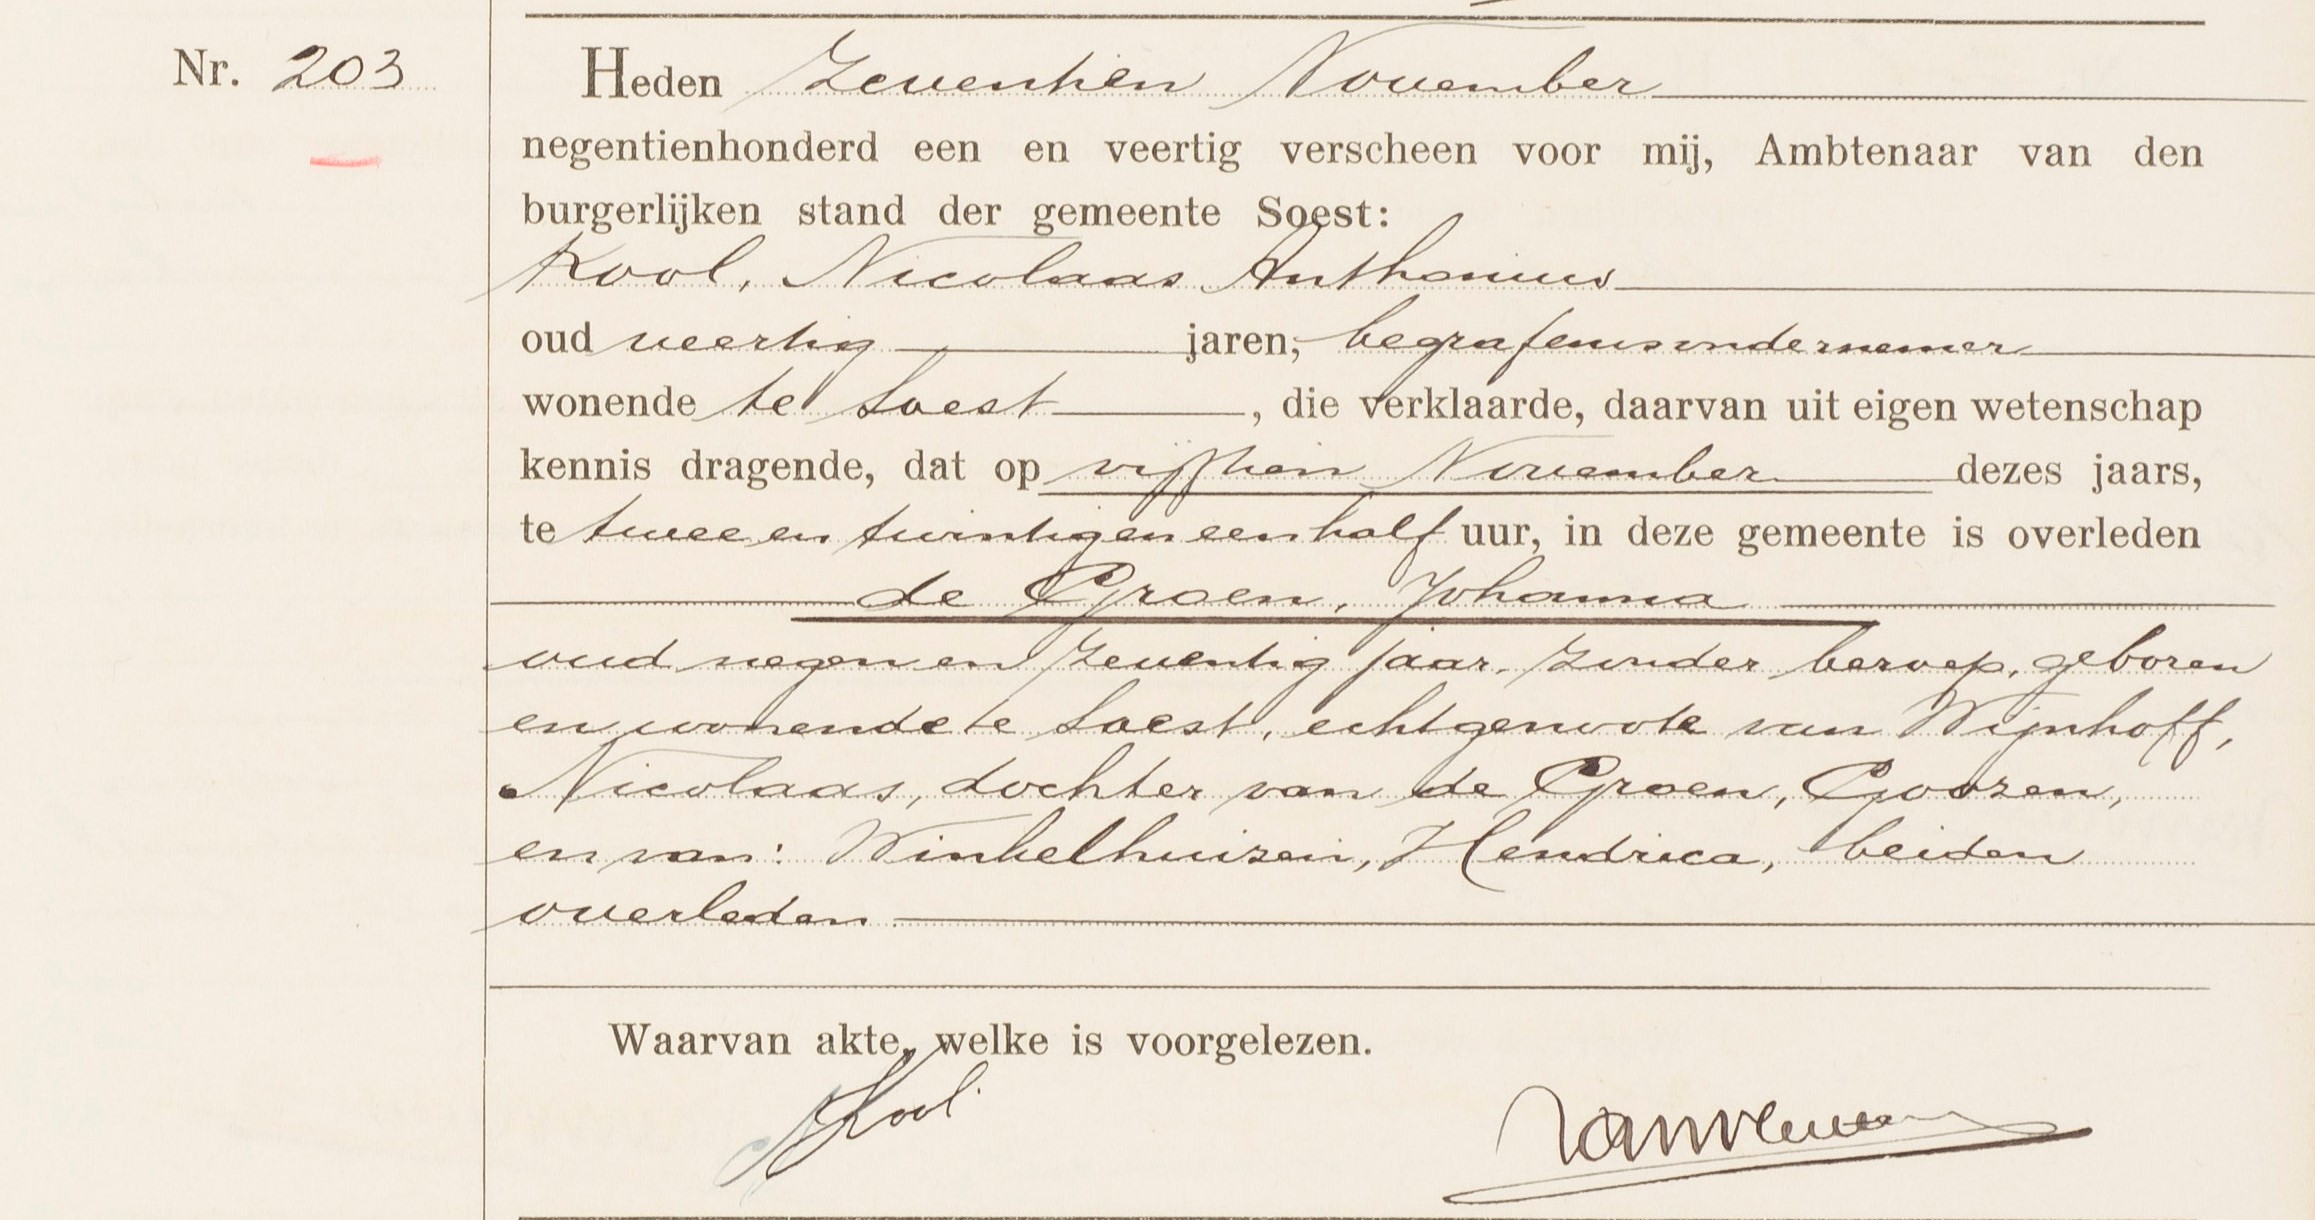 Nr. 203
Heden Zeventien November
negentienhonderd een en veertig verscheen voor mij, Ambtenaar van den
burgerlijken stand der gemeente Soest:
Kool, Nicolaas Anthonius
oud veertig jaren, begrafenisondernemer
wonende te Soest, die verklaarde, daarvan uit eigen wetenschap
kennis dragende, dat op vijftien November dezes jaars,
te twee en twintig en een half uur, in deze gemeente is overleden
de Groen, Johanna
oud negen en zeventig jaar, zonder beroep, geboren
en wonende te Soest, echtgenoote van Wijnhoff,
Nicolaas, dochter van de Groen, Goozen,
en van: Winkelhuizen, Hendrica, beiden
overleden
Waarvan akte, welke is voorgelezen.
NKool.